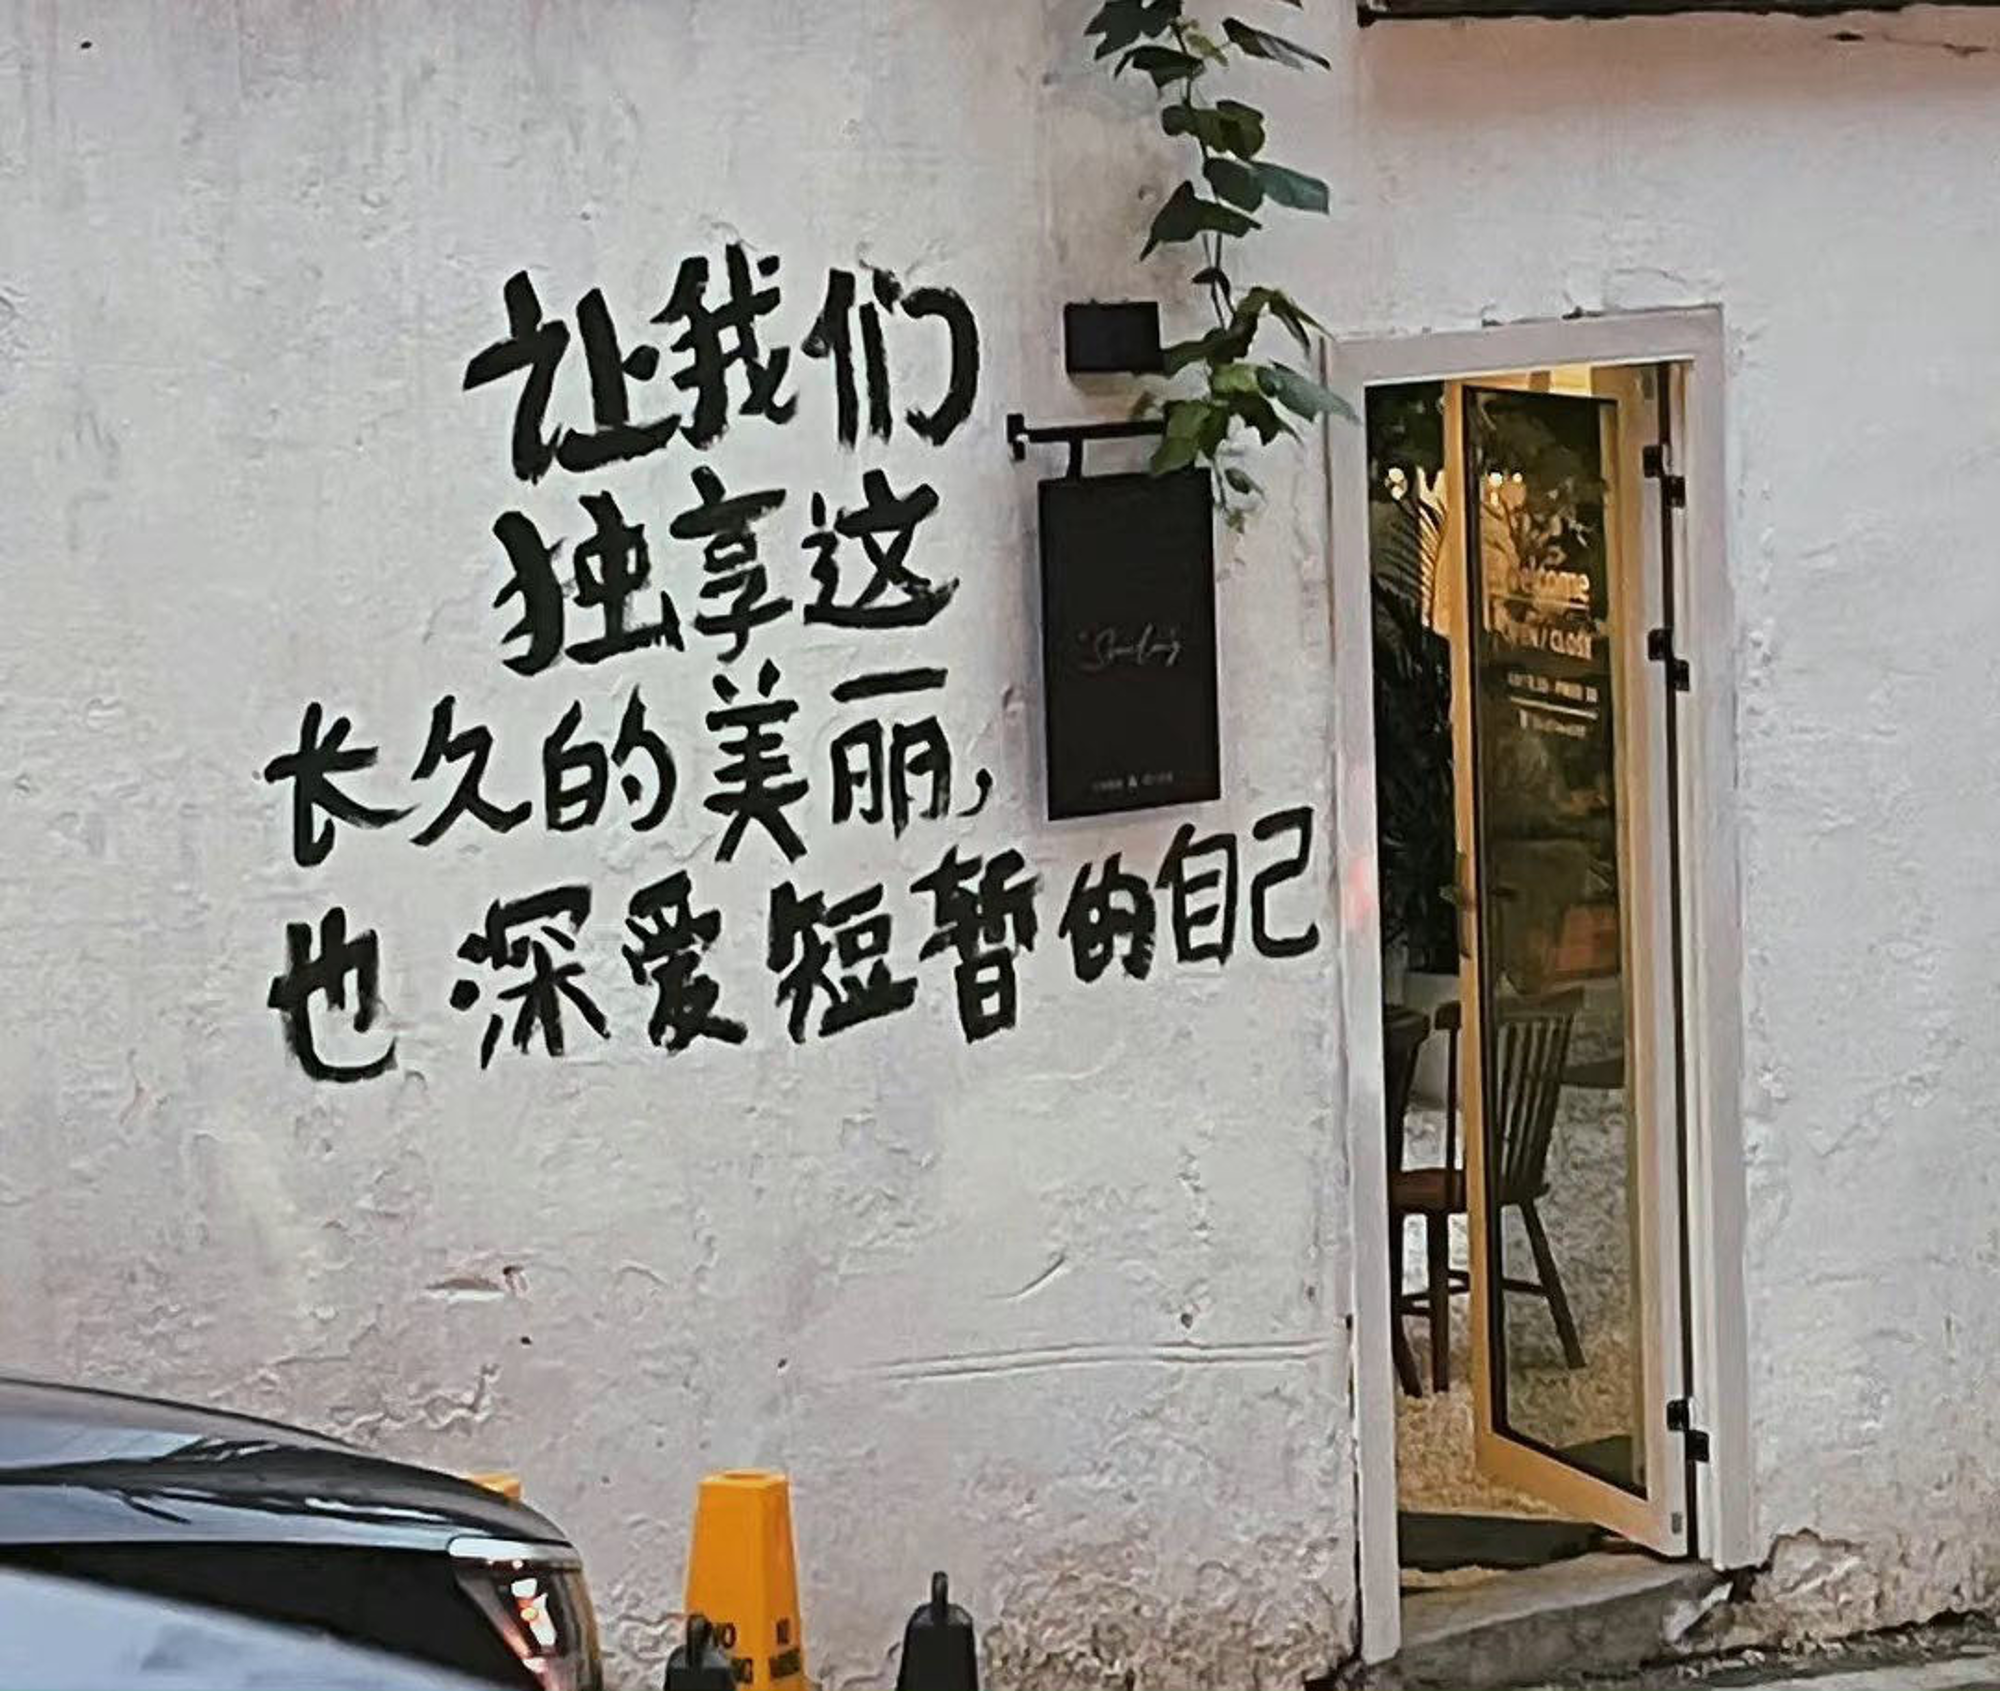 让我们
独享这
长久的美丽，
也深爱短暂的自己
Welcome
OPEN / CLOSE
NO